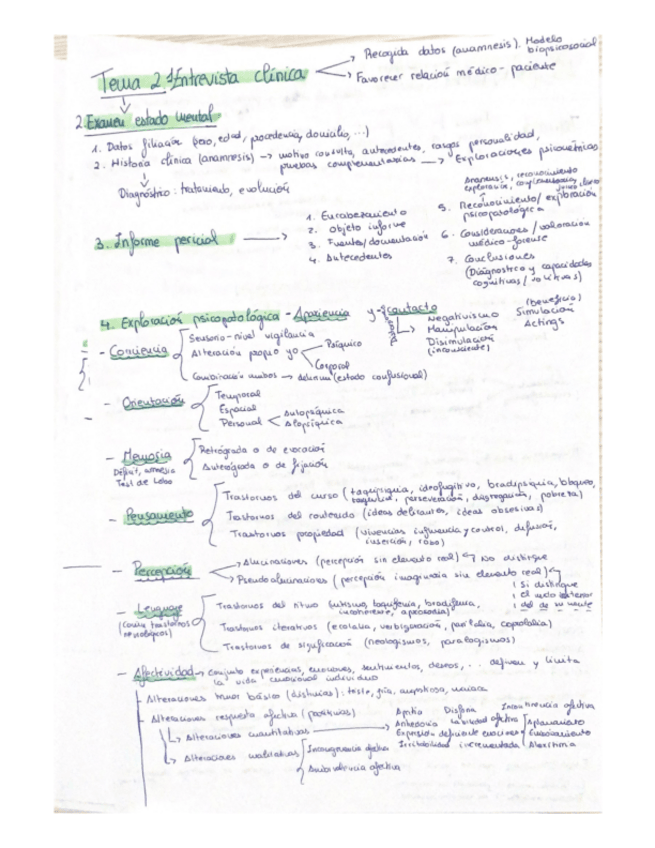 Tema 2. 1. Entrevista clínica
→ Recogida datos (anamnesis). Modelo biopsicosocial
→ Favorecer relación médico-paciente
2. Examen estado mental
1. Datos filiación (sexo, edad, procedencia, domicilio, ...)
2. Historia clínica (anamnesis) → motivo consulta, antecedentes, rasgos personalidad,
pruebas complementarias → Exploraciones psicométricas
Diagnóstico: tratamiento, evolución
3. Informe pericial →
1. Encabezamiento
2. Objeto informe
3. Fuentes/documentación
4. Antecedentes
Anamnesis, reconocimiento
exploración, complementarias,
5. Reconocimiento/exploración
psicopatológica
6. Consideraciones/valoración
médico-forense
7. Conclusiones
(Diagnóstico y capacidades
cognitivas/volitivas)
4. Exploración psicopatológica - Apariencia y contacto
Negativismo
Manipulación
Disimulación
(inconsciente)
(Beneficio)
Simulación
Actings
- Conciencia
Sensorio-nivel vigilancia
Alteración propio yo
Psíquico
Corporal
Combinación ambos → delirium (estado confusional)
- Orientación
Temporal
Espacial
Personal
Autopsíquica
Alopsíquica
- Memoria
Déficit, amnesia
Test de Lobo
Retrógrada o de evocación
Anterógrada o de fijación
- Pensamiento
Trastornos del curso (taquipsiquia, ideofugitivo, bradipsiquia, bloqueo,
perseveración, disgregación, pobreza)
Trastornos del contenido (ideas delirantes, ideas obsesivas)
Trastornos propiedad (vivencias influencia y control, difusión,
inserción, robo)
- Percepción
→ Alucinaciones (percepción sin elemento real) No distingue
→ Pseudoalucinaciones (percepción imaginaria sin elemento real)
Si distingue
el medo exterior
del de su mente
- Lenguaje
(como trastornos
neurológicos)
Trastornos del ritmo (mutismo, taquifemia, bradifemia,
incoherente, aprosodia)
Trastornos iterativos (ecolalia, verbigeración, palilalia, coprolalia)
Trastornos de significación (neologismos, paralogismos)
- Afectividad → conjunto experiencias, emociones, sentimientos, deseos, ... definen y limita
la vida emocional individuo
- Alteraciones humor básico (distimias): triste, fría, angustiosa, maníaca
- Alteraciones respuesta afectiva (positivas)
↳ Alteraciones cuantitativas →
Apatía
Anhedonia
Expresión deficiente emociones
Irritabilidad incrementada
Disforia
labilidad afectiva
Incontinencia afectiva
Aplanamiento
Alexitimia
↳ Alteraciones cualitativas
Incongruencia afectiva
Ambivalencia afectiva